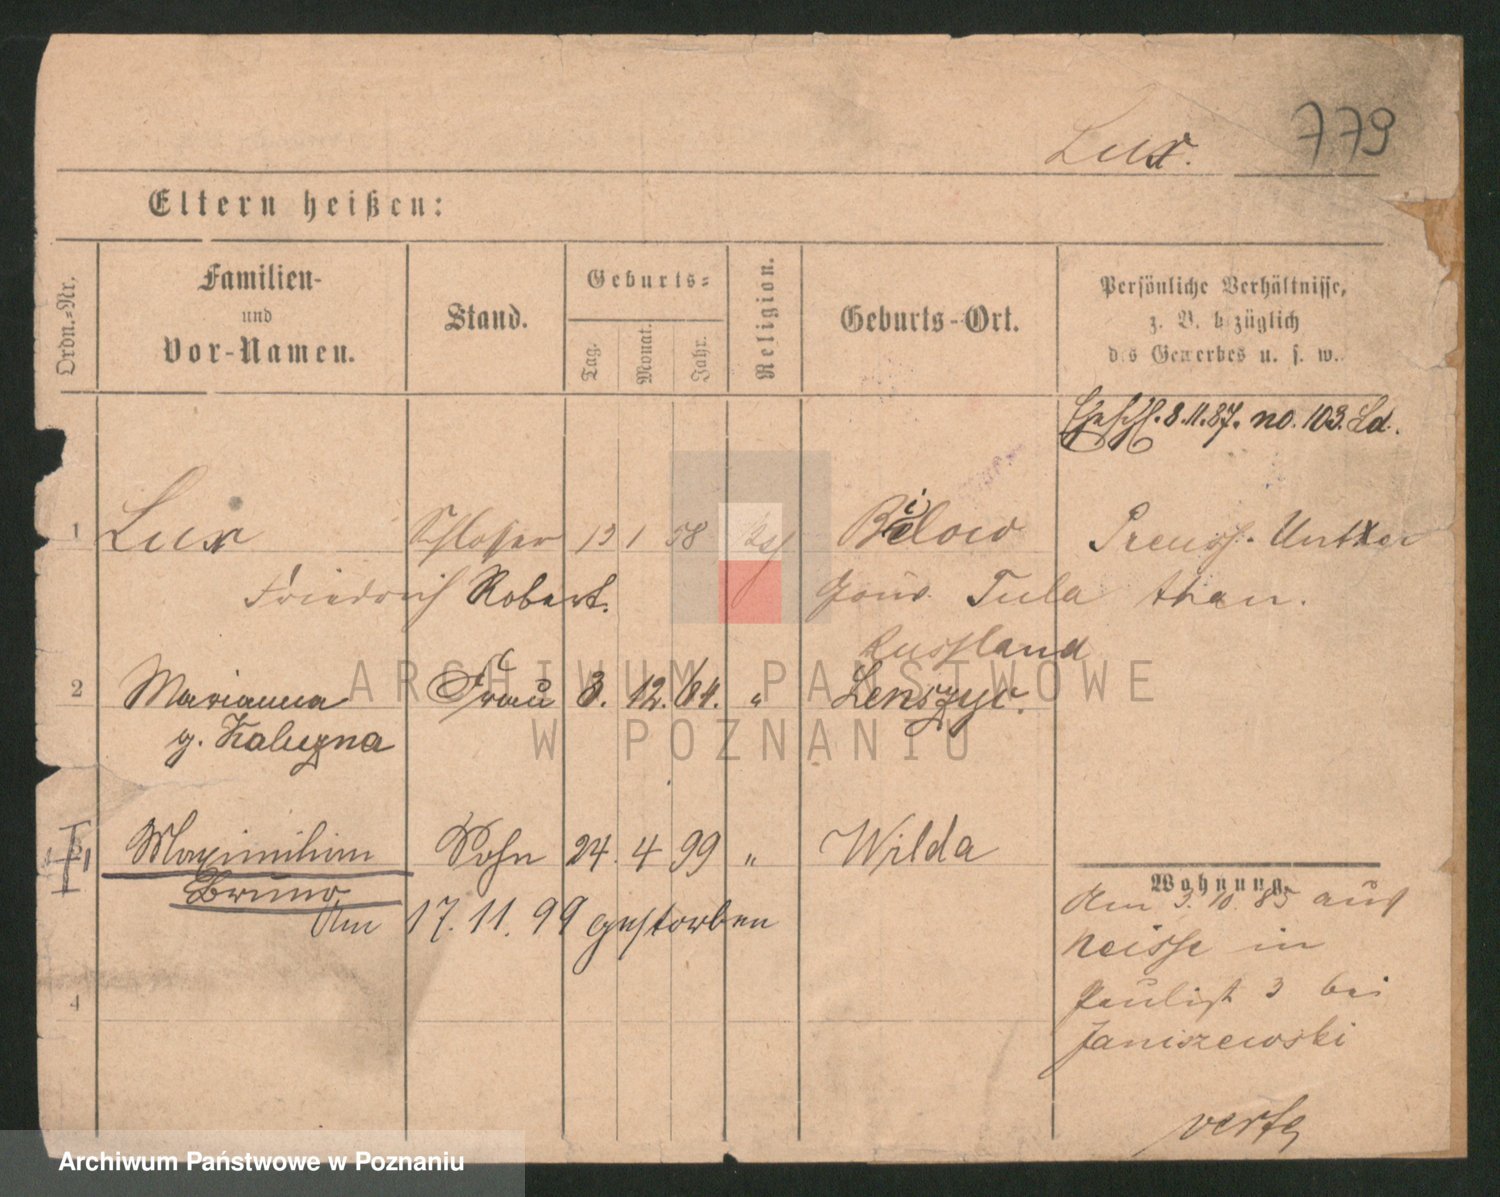 Lux.
779
Eltern heißen:
Ordn.-Nr.
Familien-
und
Vor-Namen.
Stand.
Geburts-
Tag.
Monat.
Jahr.
Religion.
Geburts-Ort.
Persönliche Verhältnisse,
z. B. bezüglich
des Gewerbes u. s. w.
Eheschl. 8.11.87. no. 103. Ld.
1 Lux Schlosser 13 1 58 Bielow Preuss. Unter
Friedrich Robert. Gouv. Tula than.
Russland
2 Marianna Frau 8. 12. 64. " Lenszyc.
g. Kaluzna
Maximilian Sohn 24. 4 99 " Wilda
Bruno
Am 17. 11. 99 gestorben
Wohnung.
Am 3. 10. 85 aus
Neisse in
Paulist 3 bei
4
Janiszewski
verte
ARCHIWUM PAŃSTWOWE
W POZNANIU
Archiwum Państwowe w Poznaniu